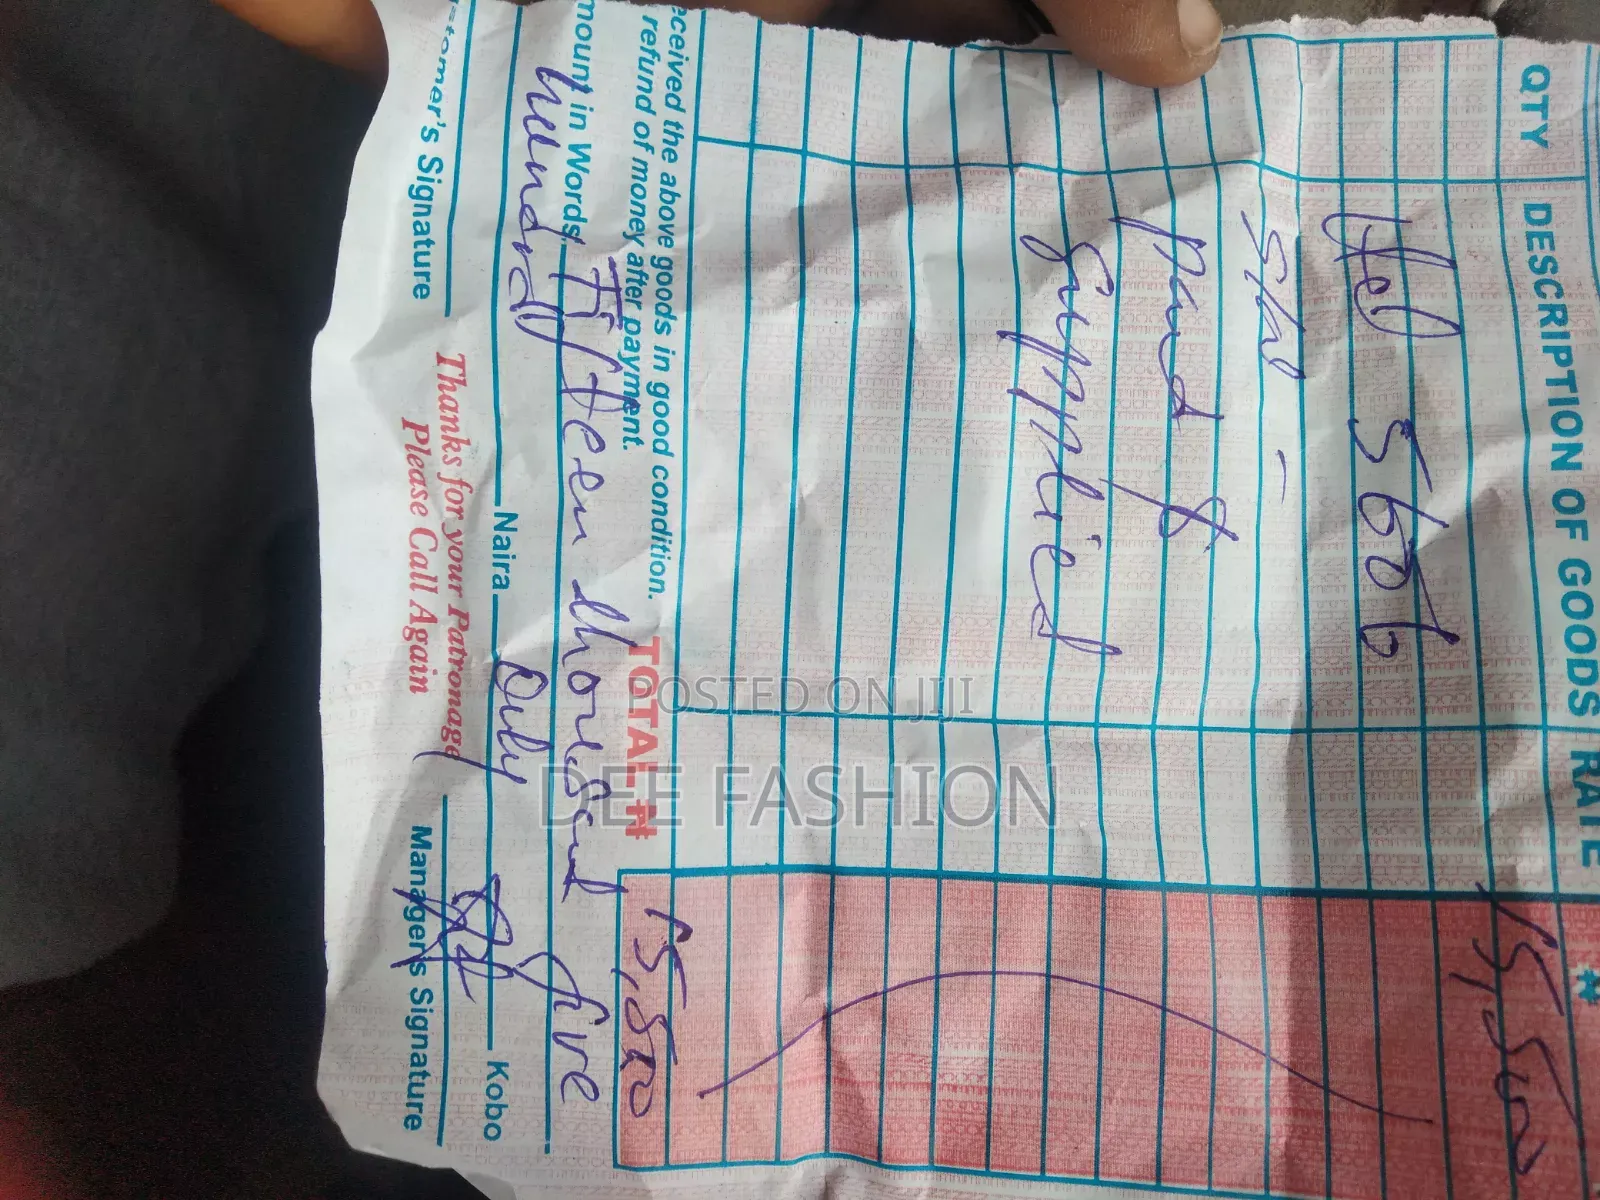 QTY DESCRIPTION OF GOODS RATE ₦
15,500
5606
Paid &
Supplied
eceived the above goods in good condition.
refund of money after payment.
TOTAL ₦ 15,500
mount in Words Fifteen thousand five
hundred Naira Only Kobo
tomer's Signature
Manager's Signature
Thanks for your Patronage
Please Call Again
POSTED ON JIJI
DEE FASHION